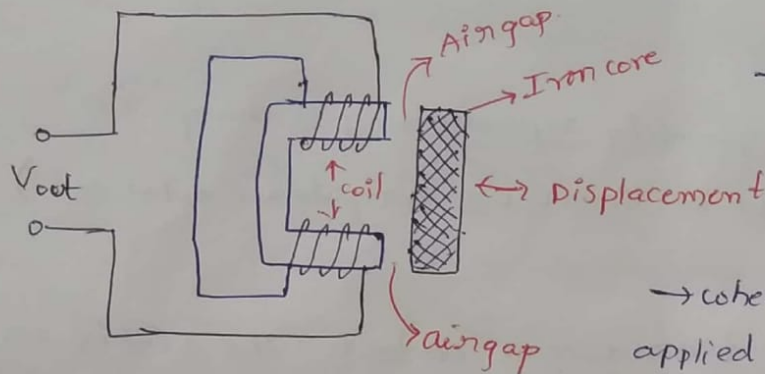 Air gap.
Iron core
Vout
coil
Displacement
→ cohe
air gap
applied